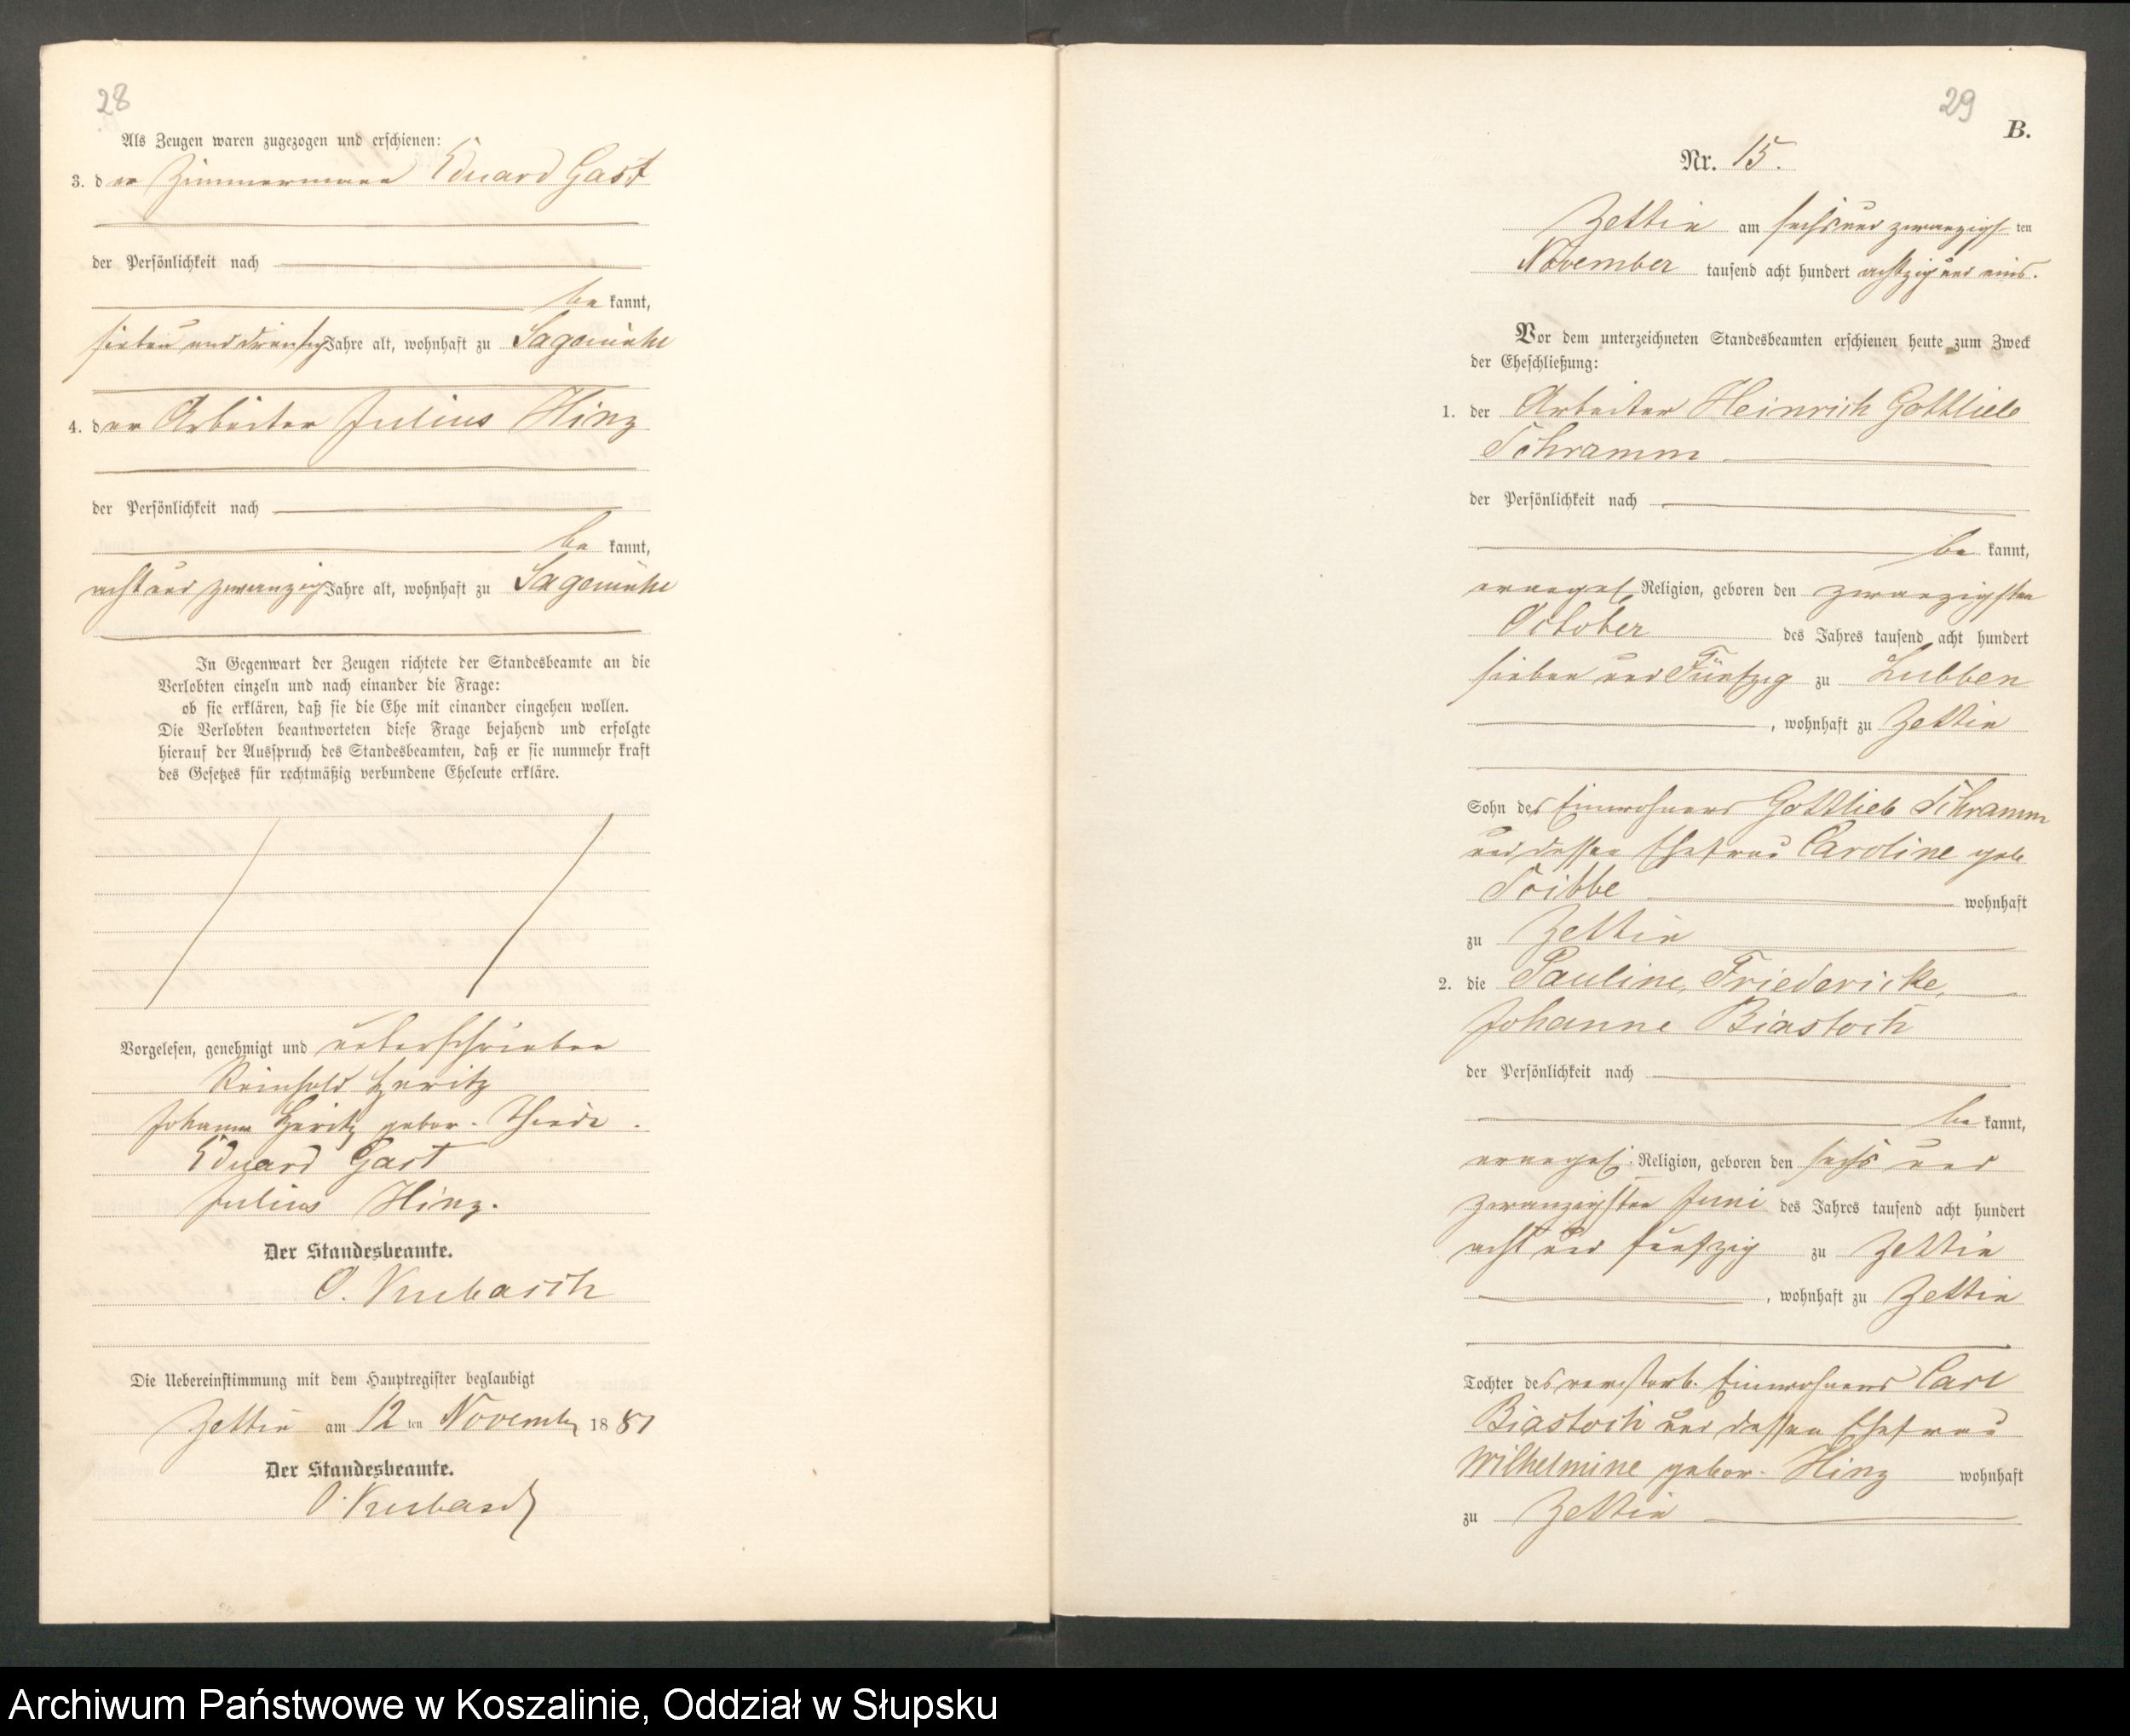 28
Als Zeugen waren zugezogen und erschienen:
3. der Zimmermann Eduard Gast
der Persönlichkeit nach
be kannt,
sieben und dreißig Jahre alt, wohnhaft zu Sagemühl
4. der Arbeiter Julius Hinz
der Persönlichkeit nach
be kannt,
acht und zwanzig Jahre alt, wohnhaft zu Sagemühl
In Gegenwart der Zeugen richtete der Standesbeamte an die
Verlobten einzeln und nach einander die Frage:
ob sie erklären, daß sie die Ehe mit einander eingehen wollen.
Die Verlobten beantworteten diese Frage bejahend und erfolgte
hierauf der Ausspruch des Standesbeamten, daß er sie nunmehr kraft
des Gesetzes für rechtmäßig verbundene Eheleute erkläre.
Vorgelesen, genehmigt und unterschrieben
Reinhold
Johanna gebor.
Eduard Gast
Julius Hinz.
Der Standesbeamte.
O. Kubasch
Die Uebereinstimmung mit dem Hauptregister beglaubigt
Zettin am 12 ten November 18 81
Der Standesbeamte.
O. Kubasch
29
B.
Nr. 15.
Zettin am sechsundzwanzigs ten
November tausend acht hundert achtzig und eins.
Vor dem unterzeichneten Standesbeamten erschienen heute zum Zweck
der Eheschließung:
1. der Arbeiter Heinrich Gottlieb
Schramm
der Persönlichkeit nach
be kannt,
evangel. Religion, geboren den zwanzigsten
October des Jahres tausend acht hundert
sieben und Fünfzig zu Lubben
, wohnhaft zu Zettin
Sohn des Einwohners Gottlieb Schramm
und dessen Ehefrau Caroline geb
wohnhaft
zu Zettin
2. die Pauline, Friedericke,
Johanne Biastoch
der Persönlichkeit nach
be kannt,
evangel. Religion, geboren den sechs und
zwanzigsten Juni des Jahres tausend acht hundert
acht und fünfzig zu Zettin
, wohnhaft zu Zettin
Tochter des verstorb. Einwohners Carl
Biastoch und dessen Ehefrau
Wilhelmine gebor. Hinz wohnhaft
zu Zettin
Archiwum Państwowe w Koszalinie, Oddział w Słupsku